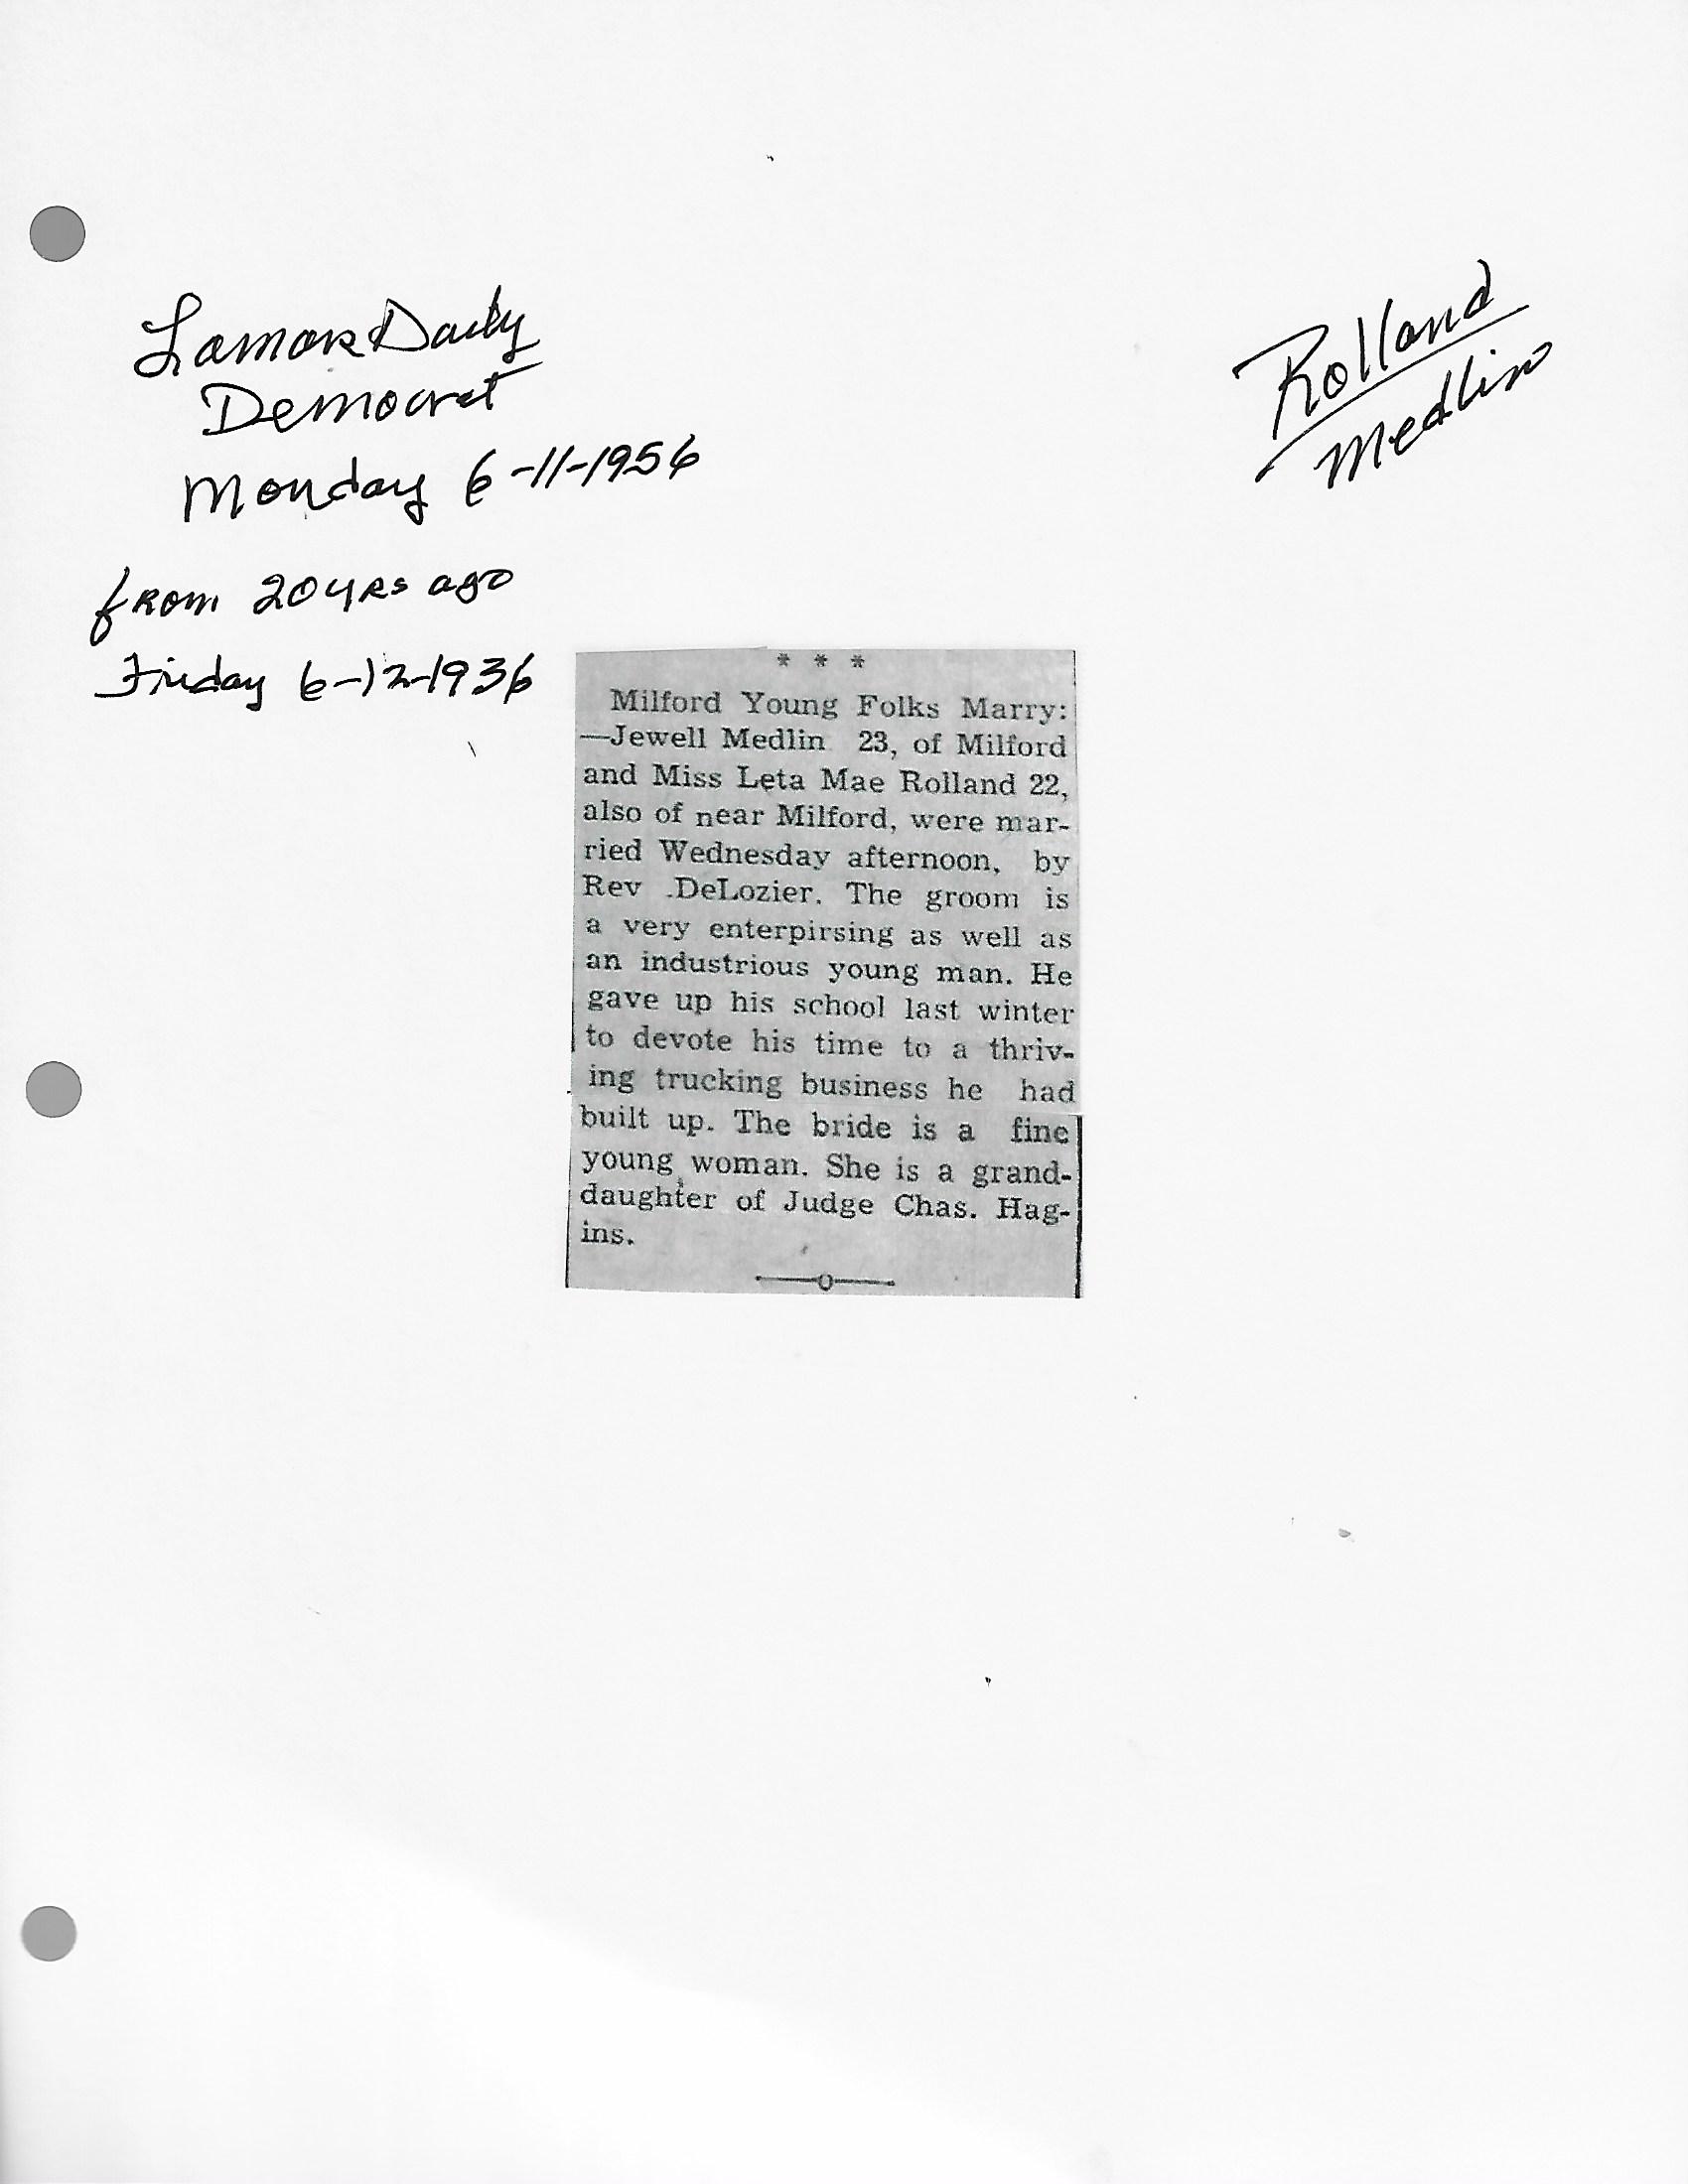 Lamar Daily
Democrat
Monday 6-11-1956
from 20 yrs ago
Friday 6-12-1936
Rolland
Medlin
* * *
Milford Young Folks Marry:
—Jewell Medlin 23, of Milford
and Miss Leta Mae Rolland 22,
also of near Milford, were mar-
ried Wednesday afternoon, by
Rev .DeLozier. The groom is
a very enterpirsing as well as
an industrious young man. He
gave up his school last winter
to devote his time to a thriv-
ing trucking business he had
built up. The bride is a fine
young woman. She is a grand-
daughter of Judge Chas. Hag-
ins.